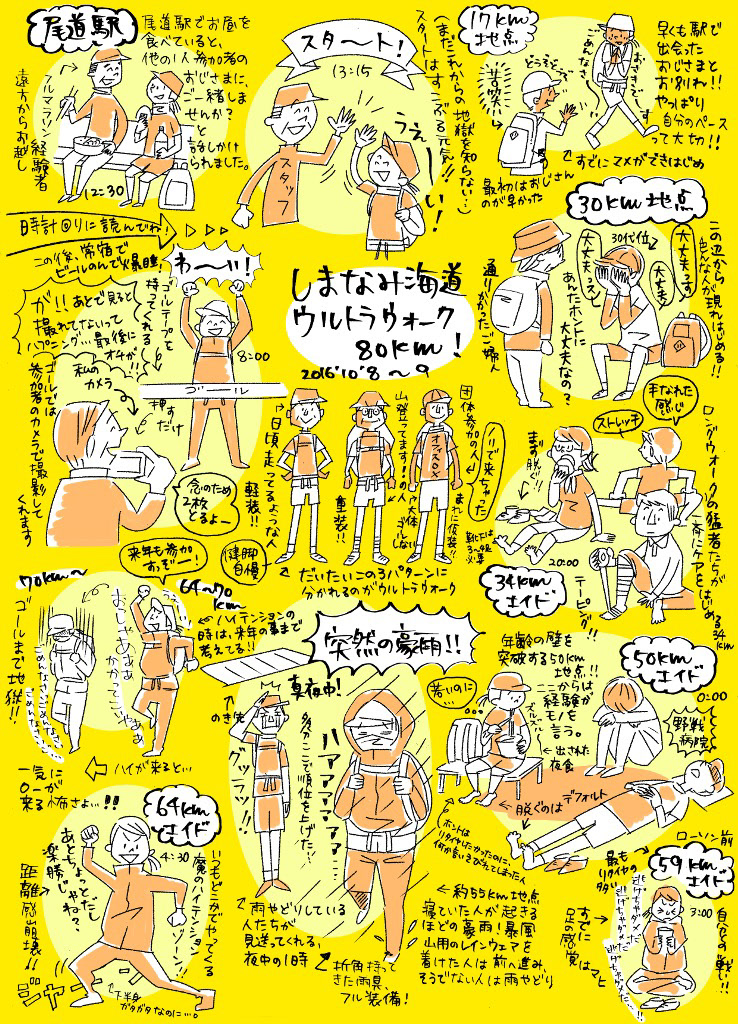 尾道駅
尾道駅でお昼を
食べていると、
他の1人参加者の
おじさまに、
ご一緒しま
せんか？
と
話しかけ
られました。
フルマラソン
経験者
遠方からお越し
12:30
スタ〜ト！
13:15
うぇーーい！
スタッフ
スタートはすこぶる元気!!
（まだこれからの地獄を知らない…）
17km
地点
早くも駅で
出会った
おじさまと
お別れ!!
やっぱり
自分のペース
って大切!!
ごめんなさい
おさきでーす
どうぞどうぞ
苦笑い
すでにマメができはじめ
最初はおじさん
のが早かった
時計回りに読んでね！
30km地点
この辺から
色んな人が現れはじめる!!
30代位
大丈夫っす
大丈夫
大丈夫っス
あんたホントに
大丈夫なの？
通りがかったご婦人
しまなみ海道
ウルトラウォーク
80km！
2016'10'8〜9
ロングウォークの猛者たちが
一斉にケアをはじめる34km
手なれた
感じ
ストレッチ
まず脱ぐ!!
靴下は
20:00
テーピング!!
34km
エイド
日頃走ってるような人
軽装!!
健脚
自慢
山登ってます！の人
重装!!
大体
ゴールしない
団体参加の人
ノリで来ちゃった
オフィス
まれに仮装!!
だいたいこの3パターンに
分かれるのがウルトラウォーク
年齢の壁を
突破する50km
地点!!
ここからは
経験が
モノを
言う。
50km
エイド
0:00
野戦
病院
若いのに
ズルズル
出された
夜食
脱ぐのはデフォルト
ホントは
リタイヤしたかったのに、
ローソン前
59km
エイド
3:00
最も
リタイヤの
多い
自分との戦い!!
逃げちゃダメだ
逃げちゃダメだ
逃げちゃダメだ…!!
すでに
足の感覚はマヒ
突然の豪雨!!
真夜中！
のき先
グッラッ!!
多分ここで順位を上げた…!!
ハァァァァァァ…
雨やどりしている
人たちが
見送ってくれる、
夜中の1時
折角持って
きた雨具、
フル装備！
約55km地点
寝ていた人が起きる
ほどの豪雨！暴風
山用のレインウェアを
着けた人は前へ進み、
そうでない人は雨やどり
64km
エイド
4:30
いつもどこかでやってくる
魔のハイテンション
ゾーン!!
あとちょっとだし
楽勝じゃね？
距離感崩壊!!
ジャン
下半身
ガタガタなのに…。
64〜70
km
来年も参加
すっぞー！
ハイテンションの
時は、来年の事まで
考えてる!!
70km〜
ゴールまで地獄!!
ごめんなさいごめんなさい
ハイが来ると…
一気に
ローが
来る怖さよ…!!
わ〜い！
ゴールテープを
持ってくれる
8:00
ゴール
この後、常宿で
ビールのんで爆睡！
が!!あとで見ると
撮れてないって
ハプニング…最後に
オチが!!
私の
カメラ
押す
だけ
念のため
2枚
とるよー
ゴールでは
参加者のカメラで撮影して
くれます